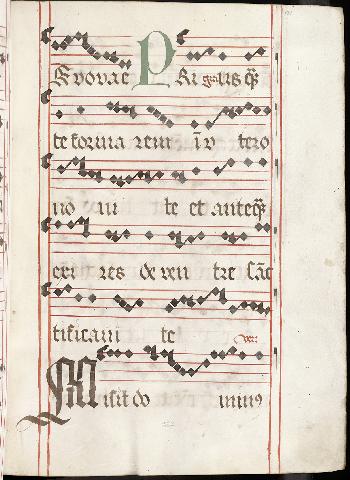 Evovae PRi uſq̃
te forma rem ī v tero
no ui te et anteq̃
exi res de ven tre ſāc
tificaui te
Miſit do minꝰ